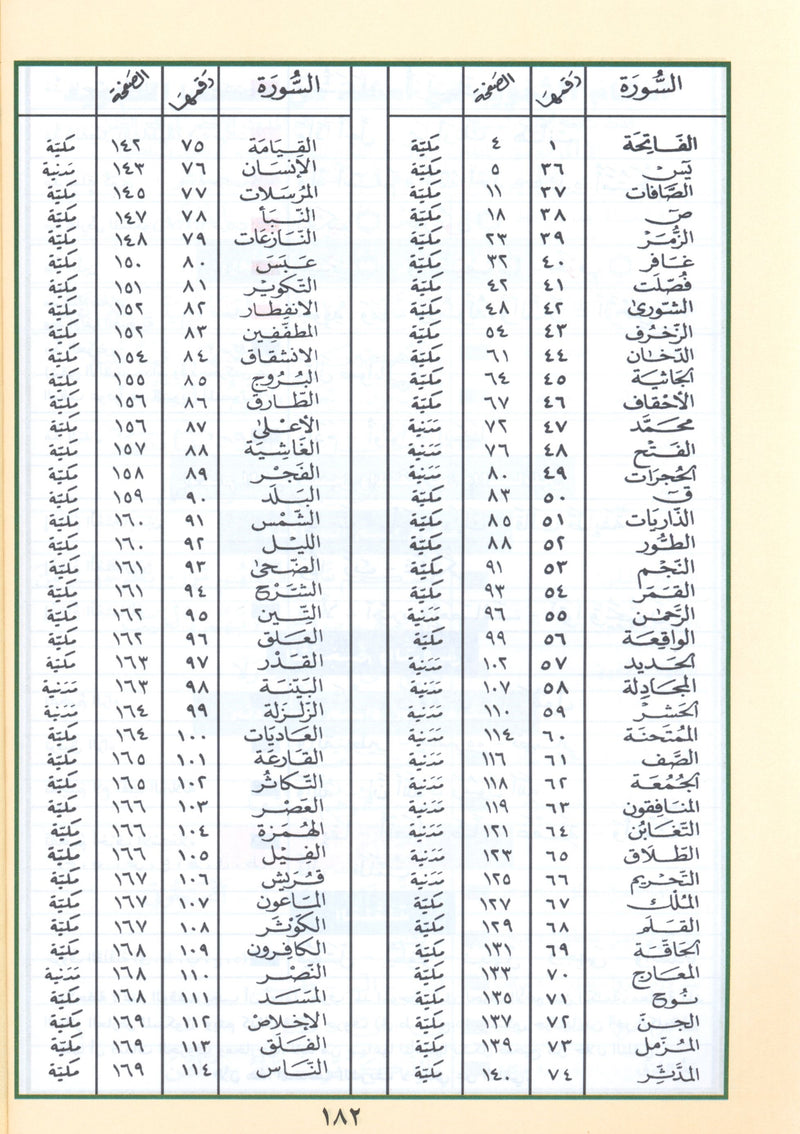 السُّورَة رَقمهَا الصَّفحَة
الفَاتِحَة ١ ٤ مكيّة
يسٓ ٣٦ ٥ مكيّة
الصَّافات ٣٧ ١١ مكيّة
صٓ ٣٨ ١٨ مكيّة
الزُّمَر ٣٩ ٢٣ مكيّة
غَافر ٤٠ ٣٢ مكيّة
فُصّلَت ٤١ ٤٢ مكيّة
الشّورىٰ ٤٢ ٤٨ مكيّة
الزّخرُف ٤٣ ٥٤ مكيّة
الدّخان ٤٤ ٦١ مكيّة
الجَاثيَة ٤٥ ٦٤ مكيّة
الأحقاف ٤٦ ٦٧ مكيّة
محَمَّد ٤٧ ٧٢ مَدَنية
الفَتْح ٤٨ ٧٦ مَدَنية
الحُجرَات ٤٩ ٨٠ مَدَنية
قٓ ٥٠ ٨٣ مكيّة
الذّاريَات ٥١ ٨٥ مكيّة
الطّور ٥٢ ٨٨ مكيّة
النّجْم ٥٣ ٩١ مكيّة
القَمَر ٥٤ ٩٣ مكيّة
الرَّحمٰن ٥٥ ٩٦ مَدَنية
الواقِعَة ٥٦ ٩٩ مكيّة
الحَديد ٥٧ ١٠٢ مَدَنية
المجَادلة ٥٨ ١٠٧ مَدَنية
الحَشر ٥٩ ١١٠ مَدَنية
المُمتَحنَة ٦٠ ١١٤ مَدَنية
الصَّف ٦١ ١١٦ مَدَنية
الجُمُعَة ٦٢ ١١٨ مَدَنية
المنَافِقون ٦٣ ١١٩ مَدَنية
التّغَابُن ٦٤ ١٢١ مَدَنية
الطّلَاق ٦٥ ١٢٣ مَدَنية
التّحْريم ٦٦ ١٢٥ مَدَنية
المُلْك ٦٧ ١٢٧ مكيّة
القَلَم ٦٨ ١٢٩ مكيّة
الحَاقّة ٦٩ ١٣١ مكيّة
المعَارج ٧٠ ١٣٣ مكيّة
نُوح ٧١ ١٣٥ مكيّة
الجنّ ٧٢ ١٣٧ مكيّة
المُزّمل ٧٣ ١٣٩ مكيّة
المدَّثِر ٧٤ ١٤٠ مكيّة
السُّورَة رَقمهَا الصَّفحَة
القِيَامَة ٧٥ ١٤٢ مكيّة
الإنسَان ٧٦ ١٤٣ مَدَنية
المُرسَلات ٧٧ ١٤٥ مكيّة
النّبَأ ٧٨ ١٤٧ مكيّة
النّازعَات ٧٩ ١٤٨ مكيّة
عَبَسَ ٨٠ ١٥٠ مكيّة
التّكوير ٨١ ١٥١ مكيّة
الانفِطار ٨٢ ١٥٢ مكيّة
المطفّفِين ٨٣ ١٥٣ مكيّة
الانشقاق ٨٤ ١٥٤ مكيّة
البُرُوج ٨٥ ١٥٥ مكيّة
الطّارق ٨٦ ١٥٦ مكيّة
الأعلىٰ ٨٧ ١٥٦ مكيّة
الغَاشيَة ٨٨ ١٥٧ مكيّة
الفَجْر ٨٩ ١٥٨ مكيّة
البَلَد ٩٠ ١٥٩ مكيّة
الشّمْس ٩١ ١٦٠ مكيّة
الليْل ٩٢ ١٦٠ مكيّة
الضّحىٰ ٩٣ ١٦١ مكيّة
الشّرْح ٩٤ ١٦١ مكيّة
التّين ٩٥ ١٦٢ مكيّة
العَلَق ٩٦ ١٦٢ مكيّة
القَدْر ٩٧ ١٦٣ مكيّة
البَيّنَة ٩٨ ١٦٣ مَدَنية
الزّلزَلة ٩٩ ١٦٤ مَدَنية
العَاديَات ١٠٠ ١٦٤ مكيّة
القَارعَة ١٠١ ١٦٥ مكيّة
التّكاثُر ١٠٢ ١٦٥ مكيّة
العَصْر ١٠٣ ١٦٦ مكيّة
الهُمَزة ١٠٤ ١٦٦ مكيّة
الفِيل ١٠٥ ١٦٦ مكيّة
قُرَيش ١٠٦ ١٦٧ مكيّة
المَاعون ١٠٧ ١٦٧ مكيّة
الكَوثَر ١٠٨ ١٦٧ مكيّة
الكافِرون ١٠٩ ١٦٨ مكيّة
النّصْر ١١٠ ١٦٨ مَدَنية
المَسَد ١١١ ١٦٨ مكيّة
الإخلَاص ١١٢ ١٦٩ مكيّة
الفَلَق ١١٣ ١٦٩ مكيّة
النّاس ١١٤ ١٦٩ مكيّة
١٨٢